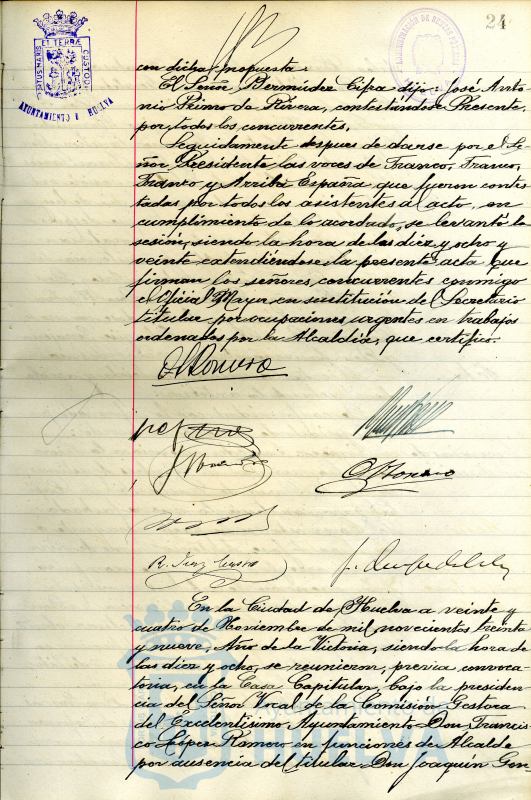 24
PORTUS MARIS ET TERRÆ CUSTODIA
AYUNTAMIENTO HUELVA
con dicha propuesta.
El Señor Bermúdez Cifra dijo: José Anto-
nio Primo de Rivera, contestándose Presente,
por todos los concurrentes.
Seguidamente despues de darse por el Se-
ñor Presidente las voces de Franco, Franco,
Franco y Arriba España que fueron contes-
tadas por todos los asistentes al acto, en
cumplimiento de lo acordado, se levantó la
sesión, siendo la hora de las diez y ocho y
veinte extendiéndose la presente acta que
firman los señores concurrentes conmigo
el Oficial Mayor en sustitución del Secretario
titular por ocupaciones urgentes en trabajos
ordenados por la Alcaldía, que certifico.
Romero
En la Ciudad de Huelva a veinte y
cuatro de Noviembre de mil novecientos treinta
y nueve, Año de la Victoria, siendo la hora de
las diez y ocho, se reunieron, previa convoca-
toria, en la Casa Capitular, bajo la presiden-
cia del Señor Vocal de la Comisión Gestora
del Excelentísimo Ayuntamiento Don Francis-
co López Romero en funciones de Alcalde
por ausencia del titular Don Joaquín Gon
HUELVA